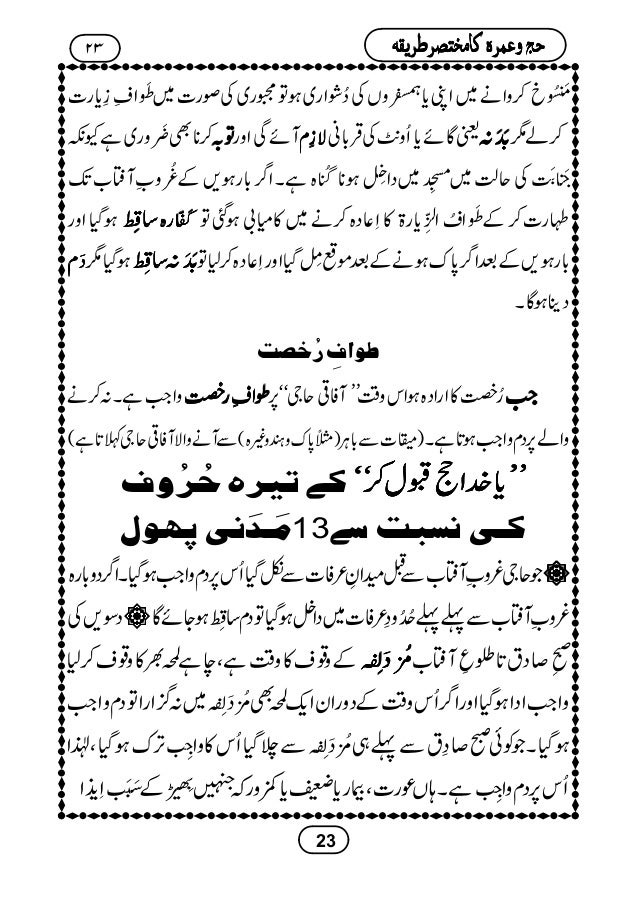 حج و عمرہ کا مختصر طریقہ
۲۳
مَنسُوخ کروانے میں اپنی یا ہمسفروں کی دُشواری ہو تو مجبوری کی صورت میں طَوافِ زِیارت
کر لے مگر بَدَنہ یعنی گائے یا اُونٹ کی قربانی لازِم آئے گی اور توبہ کرنا بھی ضَروری ہے کیونکہ
جَنابَت کی حالت میں مسجِد میں داخِل ہونا گُناہ ہے۔ اگر بارہویں کے غُروبِ آفتاب تک
طہارت کر کے طَوافُ الزِّیارۃ کا اِعادہ کرنے میں کامیابی ہو گئی تو کَفّارہ ساقِط ہو گیا اور
بارہویں کے بعد اگر پاک ہونے کے بعد موقع مِل گیا اور اِعادہ کر لیا تو بَدَنہ ساقِط ہو گیا مگر دَم
دینا ہوگا۔
طوافِ رُخصت
جب رُخصت کا ارادہ ہو اس وقت ”آفاقی حاجی“ پر طوافِ رخصت واجب ہے۔ نہ کرنے
والے پر دم واجب ہوتا ہے۔ (میقات سے باہر (مثلاً پاک و ہند وغیرہ) سے آنے والا آفاقی حاجی کہلاتا ہے)
”یا خدا حج قبول کر“ کے تیرہ حُرُوف
کی نسبت سے 13 مَدَنی پھول
جو حاجی غروبِ آفتاب سے قبل میدانِ عرفات سے نکل گیا اُس پر دم واجب ہو گیا۔ اگر دوبارہ
غروبِ آفتاب سے پہلے پہلے حُدُودِ عرفات میں داخل ہو گیا تو دم ساقِط ہو جائے گا دسویں کی
صبحِ صادق تا طلوعِ آفتاب مُزدَلِفہ کے وقوف کا وقت ہے، چاہے لمحہ بھر کا وقوف کر لیا
واجب ادا ہو گیا اور اگر اُس وقت کے دوران ایک لمحہ بھی مُزدَلِفہ میں نہ گزارا تو دم واجب
ہو گیا۔ جو کوئی صبحِ صادِق سے پہلے ہی مُزدَلِفہ سے چلا گیا اُس کا واجِب ترک ہو گیا، لہٰذا
اُس پر دم واجِب ہے۔ ہاں عورت، بیمار یا ضعیف یا کمزور کہ جنہیں بِھیڑ کے سَبَب اِیذا
23